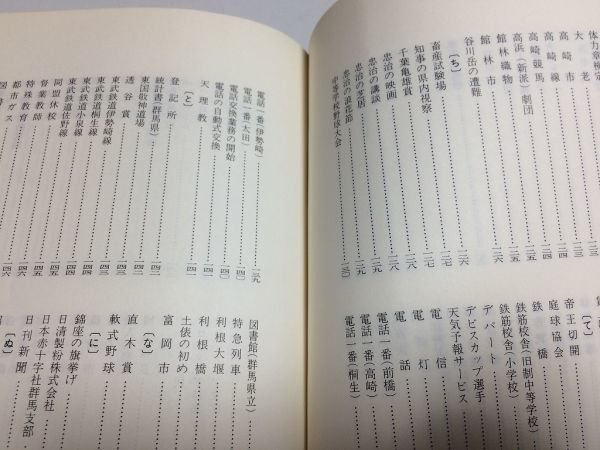 体力章検定
大老
高崎市
高崎線
高崎競馬
高浜（新派）劇団
館林織物
館林市
谷川岳の遭難
〔ち〕
畜産試験場
知事の県内視察
千葉亀雄賞
忠治の映画
忠治の芝居
忠治の講談
忠治の浪花節
中等学校野球大会
〔て〕
帝王切開
庭球協会
鉄橋
鉄筋校舎（旧制中等学校）
鉄筋校舎（小学校）
デパート
デビスカップ選手
天気予報サービス
電信
電灯
電話
電話一番（前橋）
電話一番（高崎）
電話一番（桐生）
電話一番（伊勢崎） 三九
電話一番（太田） 四〇
電話交換業務の開始 四〇
電話の自動式交換 四一
天理教 四一
〔と〕
登記所 四二
統計書（群馬県） 四二
東国敬神道場 四三
透谷賞 四三
東武鉄道伊勢崎線 四四
東武鉄道桐生線 四四
東武鉄道小泉線 四四
東武鉄道佐野線 四四
同盟休校 四五
督業教師 四五
特殊教育 四五
都市ガス 四六
図書館（群馬県立）
特急列車
利根大堰
利根橋
土俵の初め
富岡市
〔な〕
直木賞
軟式野球
〔に〕
錦座の旗挙げ
日清製粉株式会社
日本赤十字社群馬支部
日刊新聞
〔ぬ〕